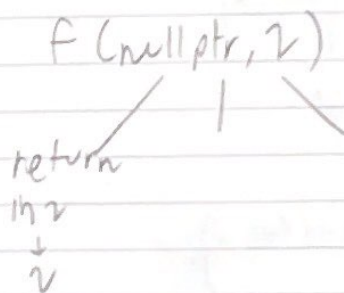 f(nullptr, 2)
return
in 2
↓
2